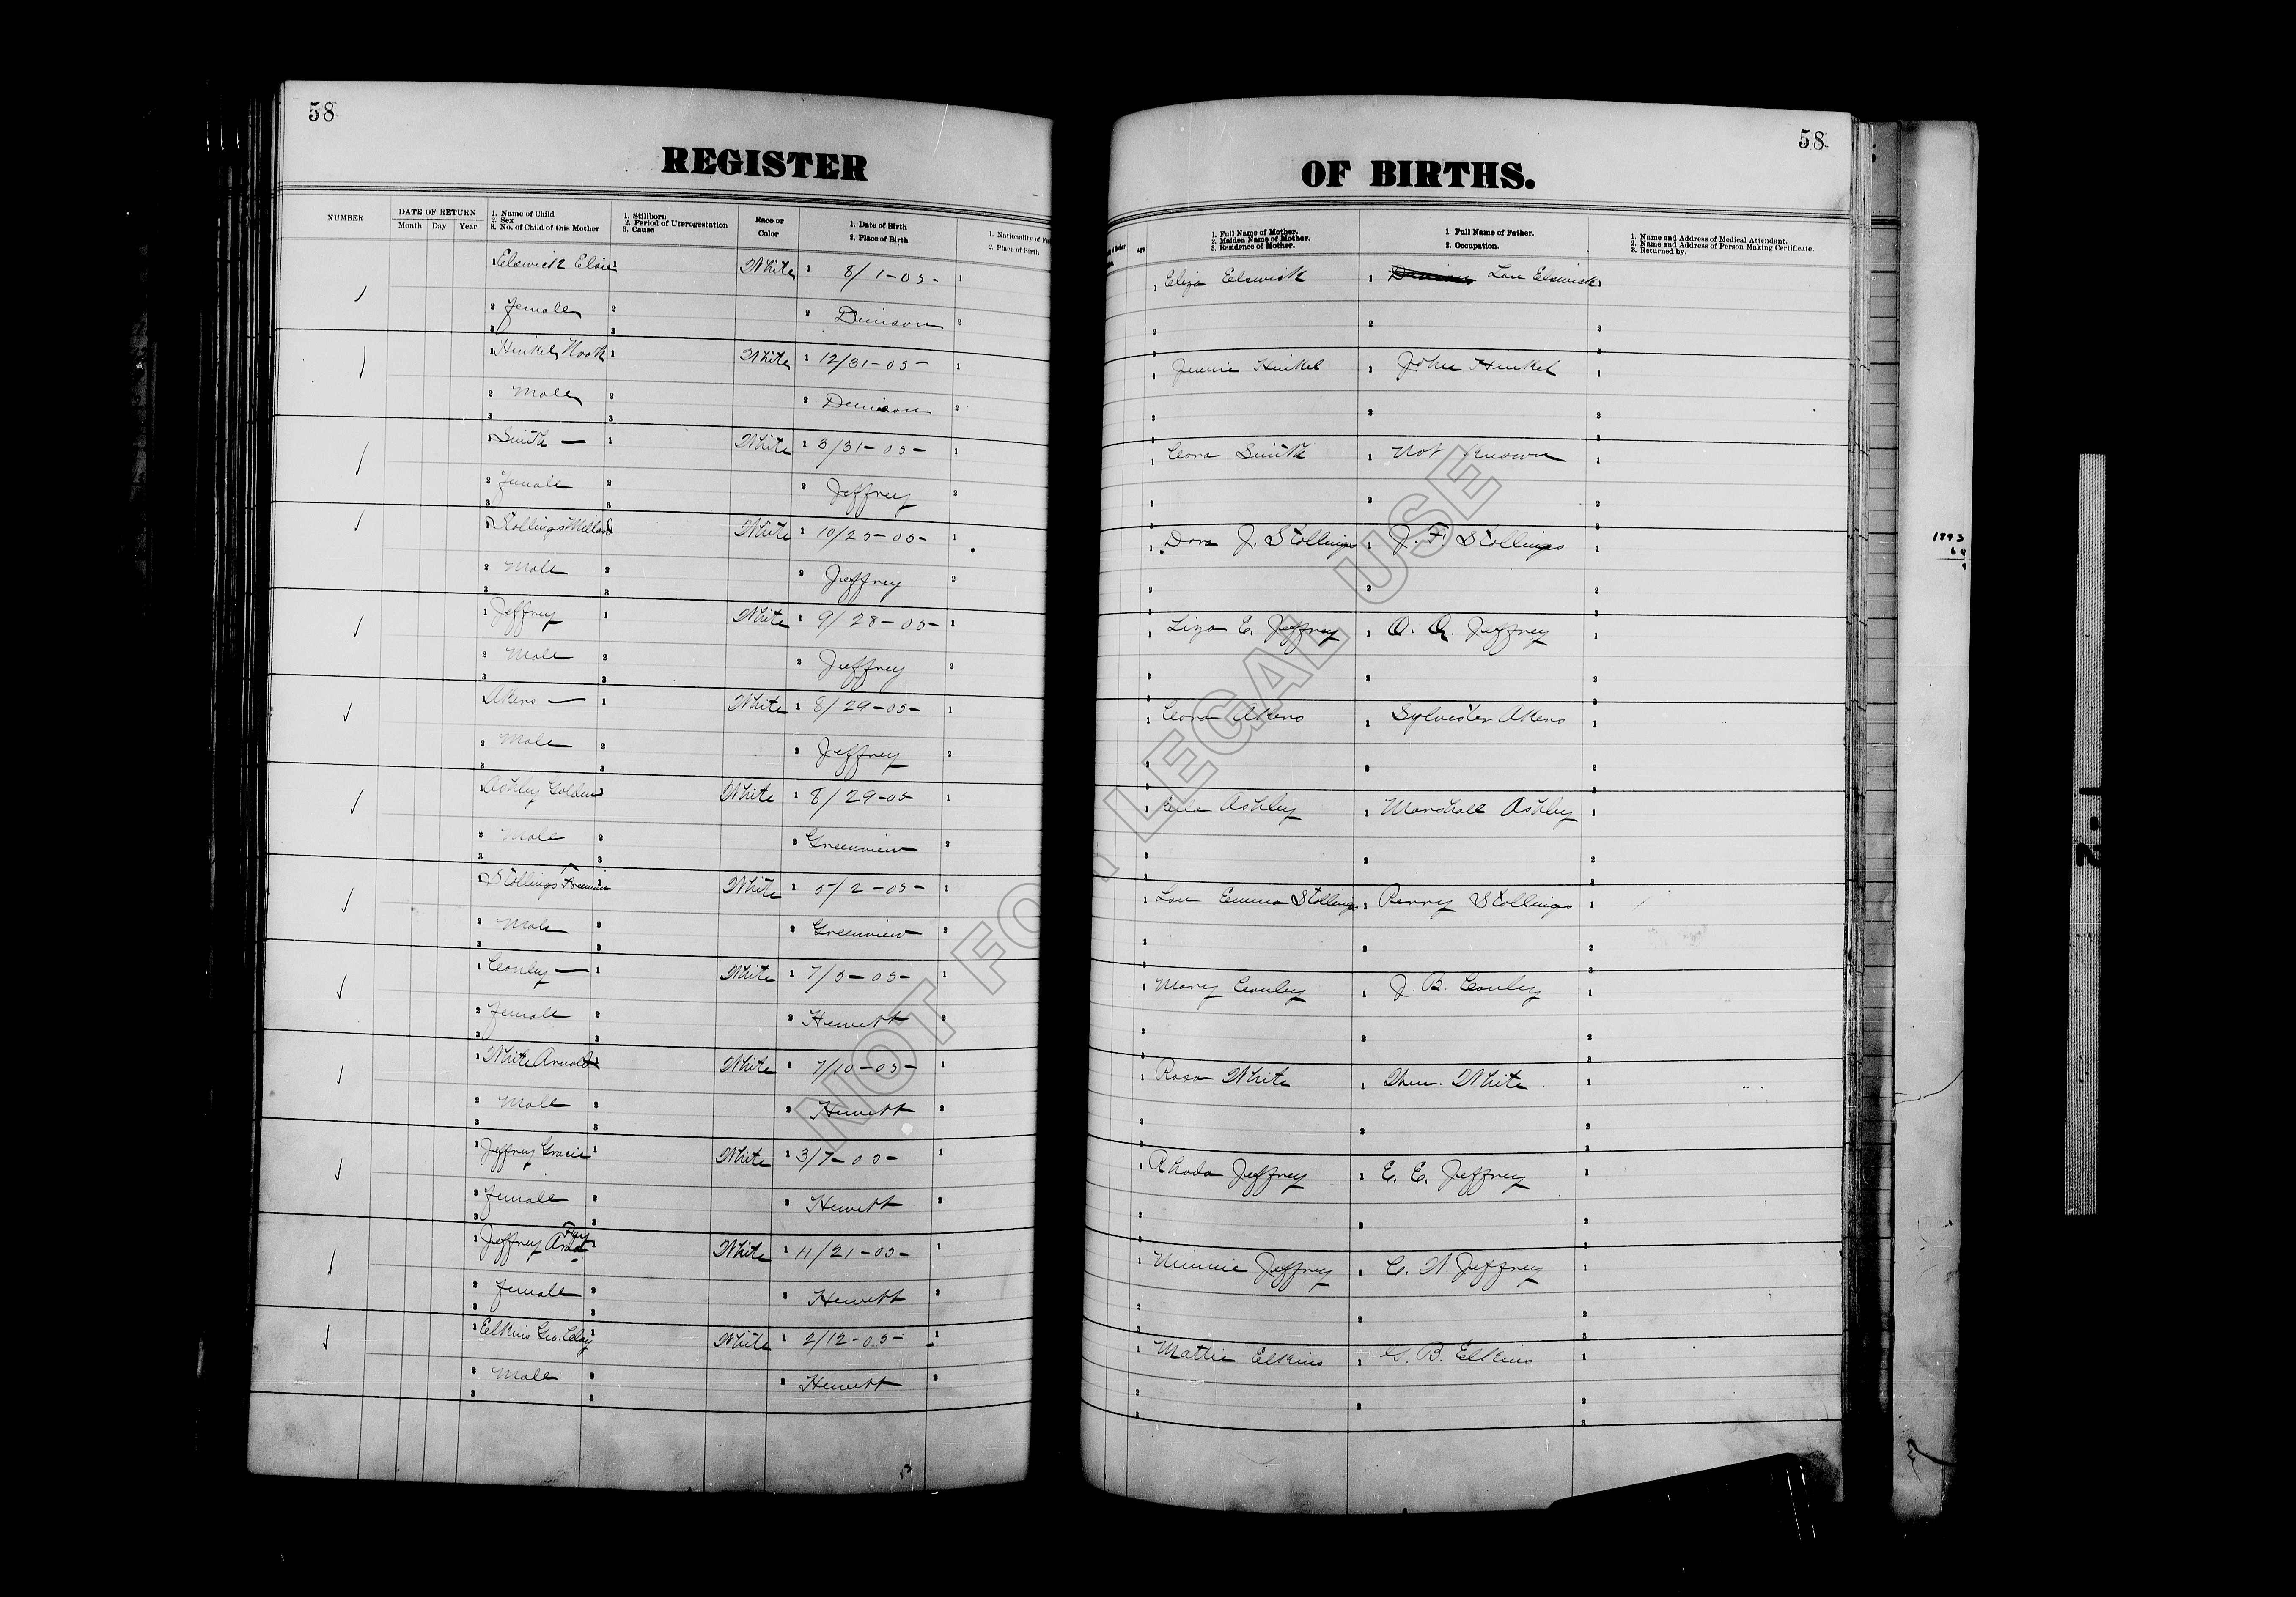 58
REGISTER
NUMBER
DATE OF RETURN
Month Day Year
1. Name of Child
2. Sex
3. No. of Child of this Mother
1. Stillborn
2. Period of Uterogestation
3. Cause
Race or
Color
1. Date of Birth
2. Place of Birth
1. Nationality of
2. Place of Birth
Elswick Elsie White 8/1-05-
female Denison
Hinkel Noah White 12/31-05-
Male Denison
Smith — White 3/31-05-
female Jeffrey
Stollings Millard White 10/25-05-
Male Jeffrey
Jeffrey White 9/28-05-
Male Jeffrey
Akers — White 8/29-05-
Male Jeffrey
Ashley Golden White 8/29-05-
Male Greenview
Stollings Freeman White 5/2-05-
Male Greenview
Conley — White 7/5-05-
female Hewett
White Arnold White 7/10-05-
Male Hewett
Jeffrey Gracie White 3/7-05-
female Hewett
Fay
Jeffrey White 11/21-05-
female Hewett
Elkins Geo. White 2/12-05-
Male Hewett
58
OF BIRTHS.
Age
1. Full Name of Mother.
2. Maiden Name of Mother.
3. Residence of Mother.
1. Full Name of Father.
2. Occupation.
1. Name and Address of Medical Attendant.
2. Name and Address of Person Making Certificate.
3. Returned by.
Eliza Elswick Lou Elswick
Jennie Hinkel John Hinkel
Cora Smith Not Known
Dora J. Stollings J. F. Stollings
Liza E. Jeffrey O. Q. Jeffrey
Cora Akers Sylvester Akers
Ella Ashley Marshall Ashley
Lou Emma Stollings Perry Stollings
Mary Conley J. B. Conley
Rosa White Thm. White
Rhoda Jeffrey E. E. Jeffrey
Minnie Jeffrey C. W. Jeffrey
Mattie Elkins G. B. Elkins
NOT FOR LEGAL USE
1993
64
2.1